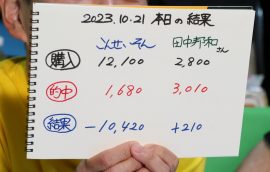 2023.10.21 本日の結果
こんせいそん 田中寿和さん
購入 12,100 2,800
的中 1,680 3,010
結果 -10,420 +210